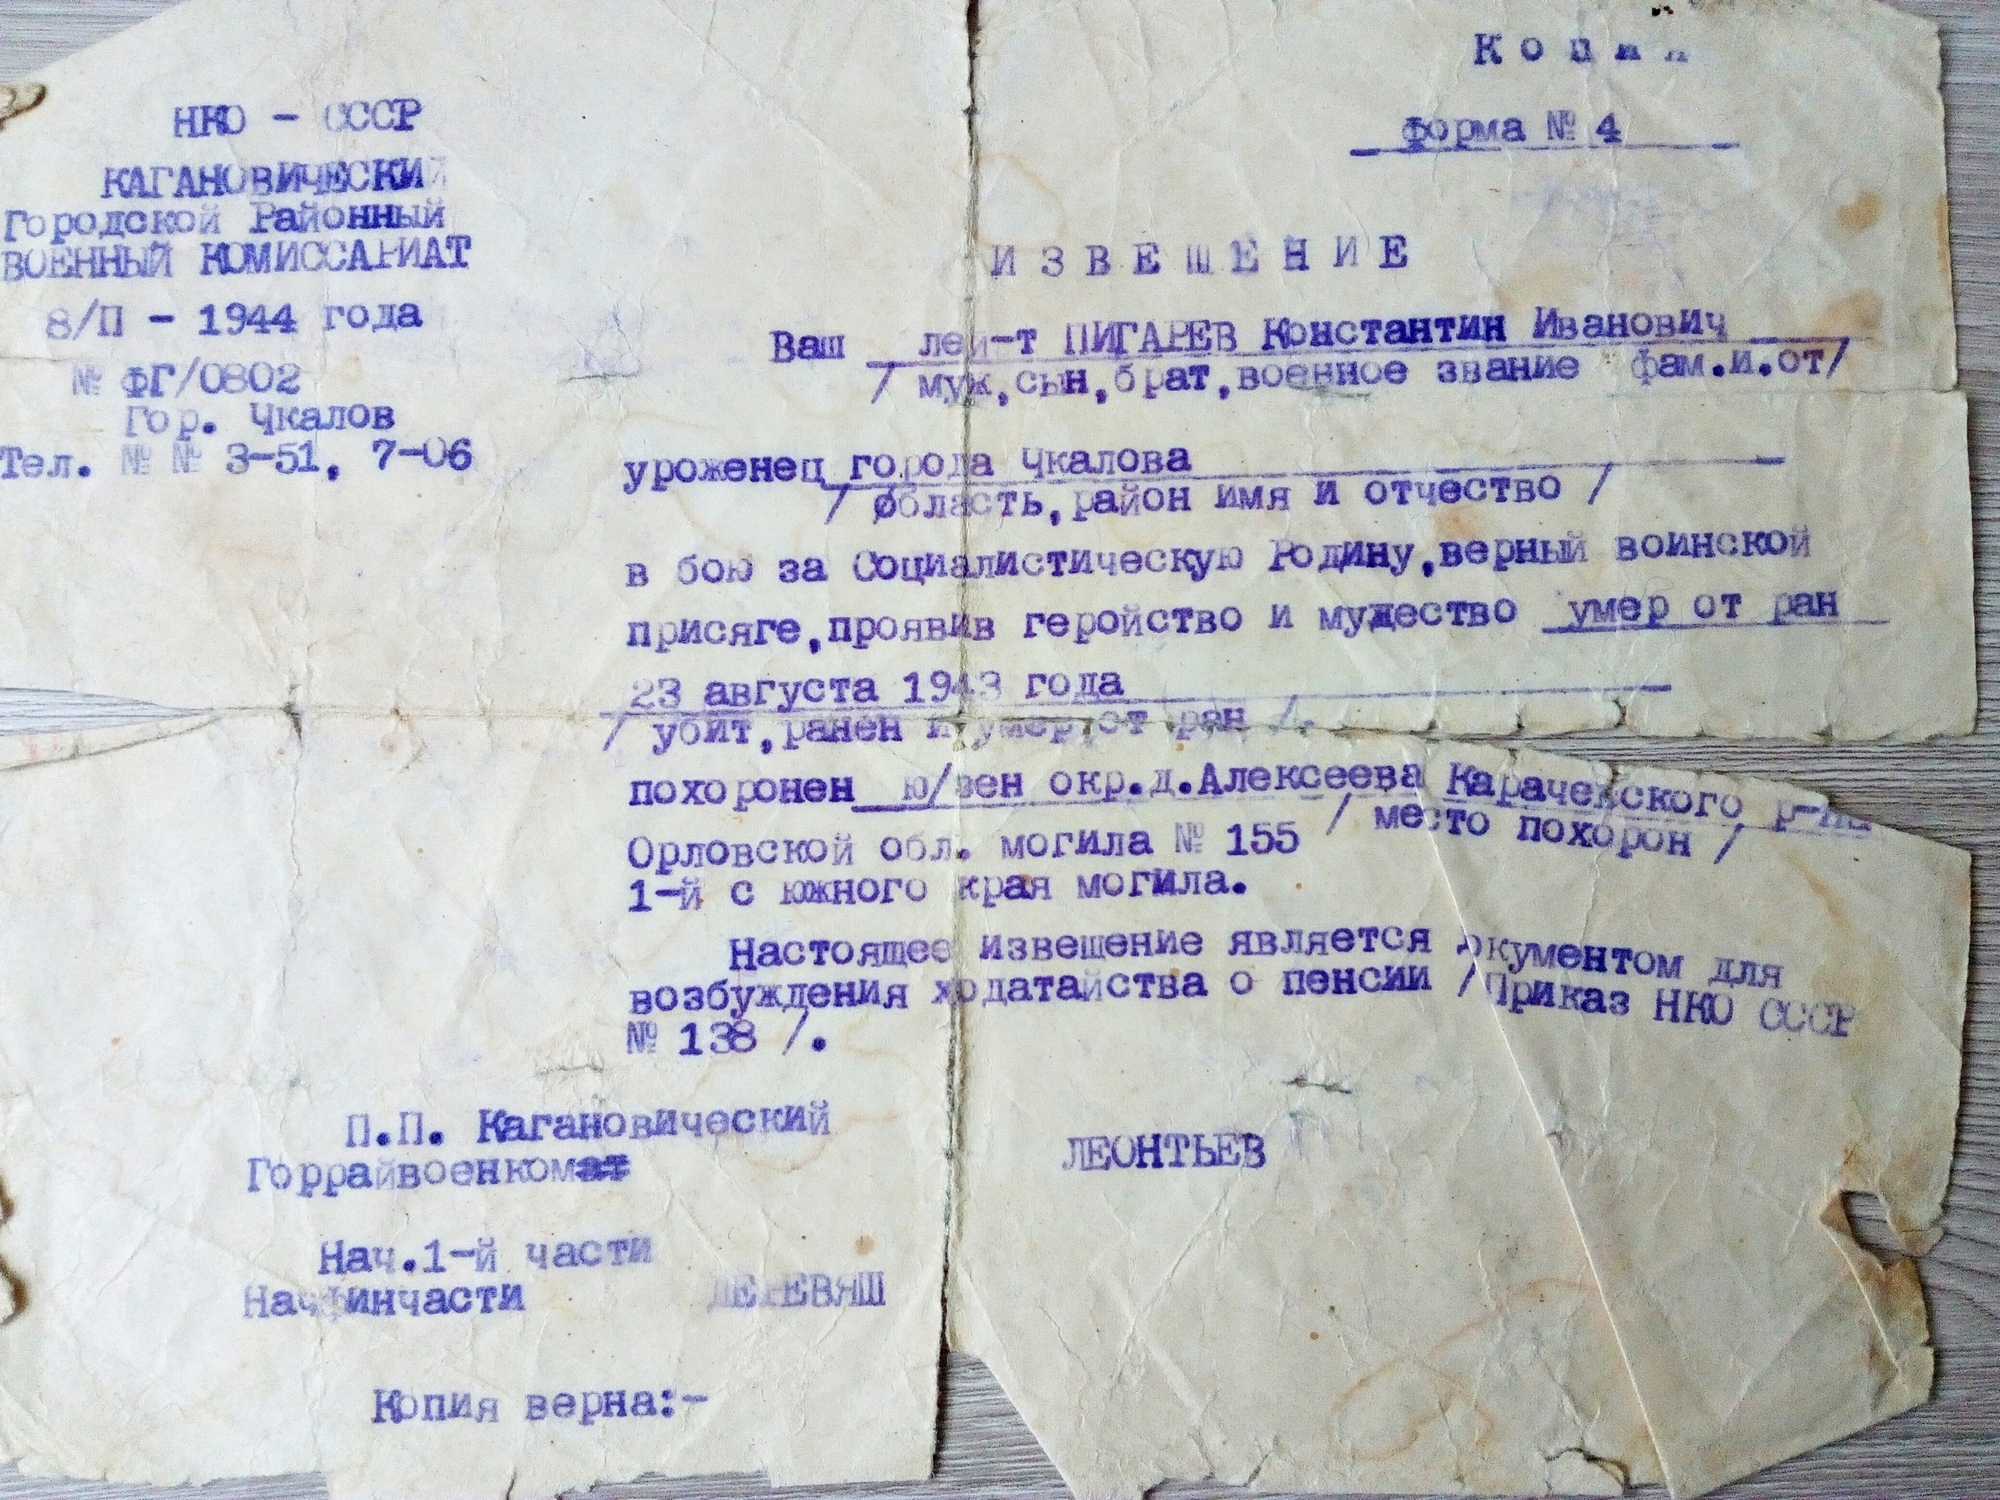 Копия
форма № 4
НКО - СССР
КАГАНОВИЧЕСКИЙ
Городской Районный
ВОЕННЫЙ КОМИССАРИАТ
8/П - 1944 года
№ ФГ/0802
Гор. Чкалов
Тел. № № 3-51, 7-06
ИЗВЕШЕНИЕ
Ваш лей-т ПИГАРЕВ Константин Иванович
/ муж,сын,брат,военное звание фам.и.от/
уроженец города Чкалова
/ область,район имя и отчество /
в бою за Социалистическую Родину,верный воинской
присяге,проявив геройство и мужество умер от ран
23 августа 1943 года
/ убит,ранен и умер от ран /.
похоронен ю/зен окр.д.Алексеева Карачейского р-на
/ место похорон /
Орловской обл. могила № 155
1-й с южного края могила.
Настоящее извешение является документом для
возбуждения ходатайства о пенсии /Приказ НКО СССР
№ 138 /.
П.П. Кагановический
Горрайвоенком ЛЕОНТЬЕВ
Нач.1-й части
Начфинчасти ДЕРЕВЯШ
Копия верна:-